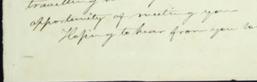 travelling
opportunity of meeting you
Hoping to hear from you